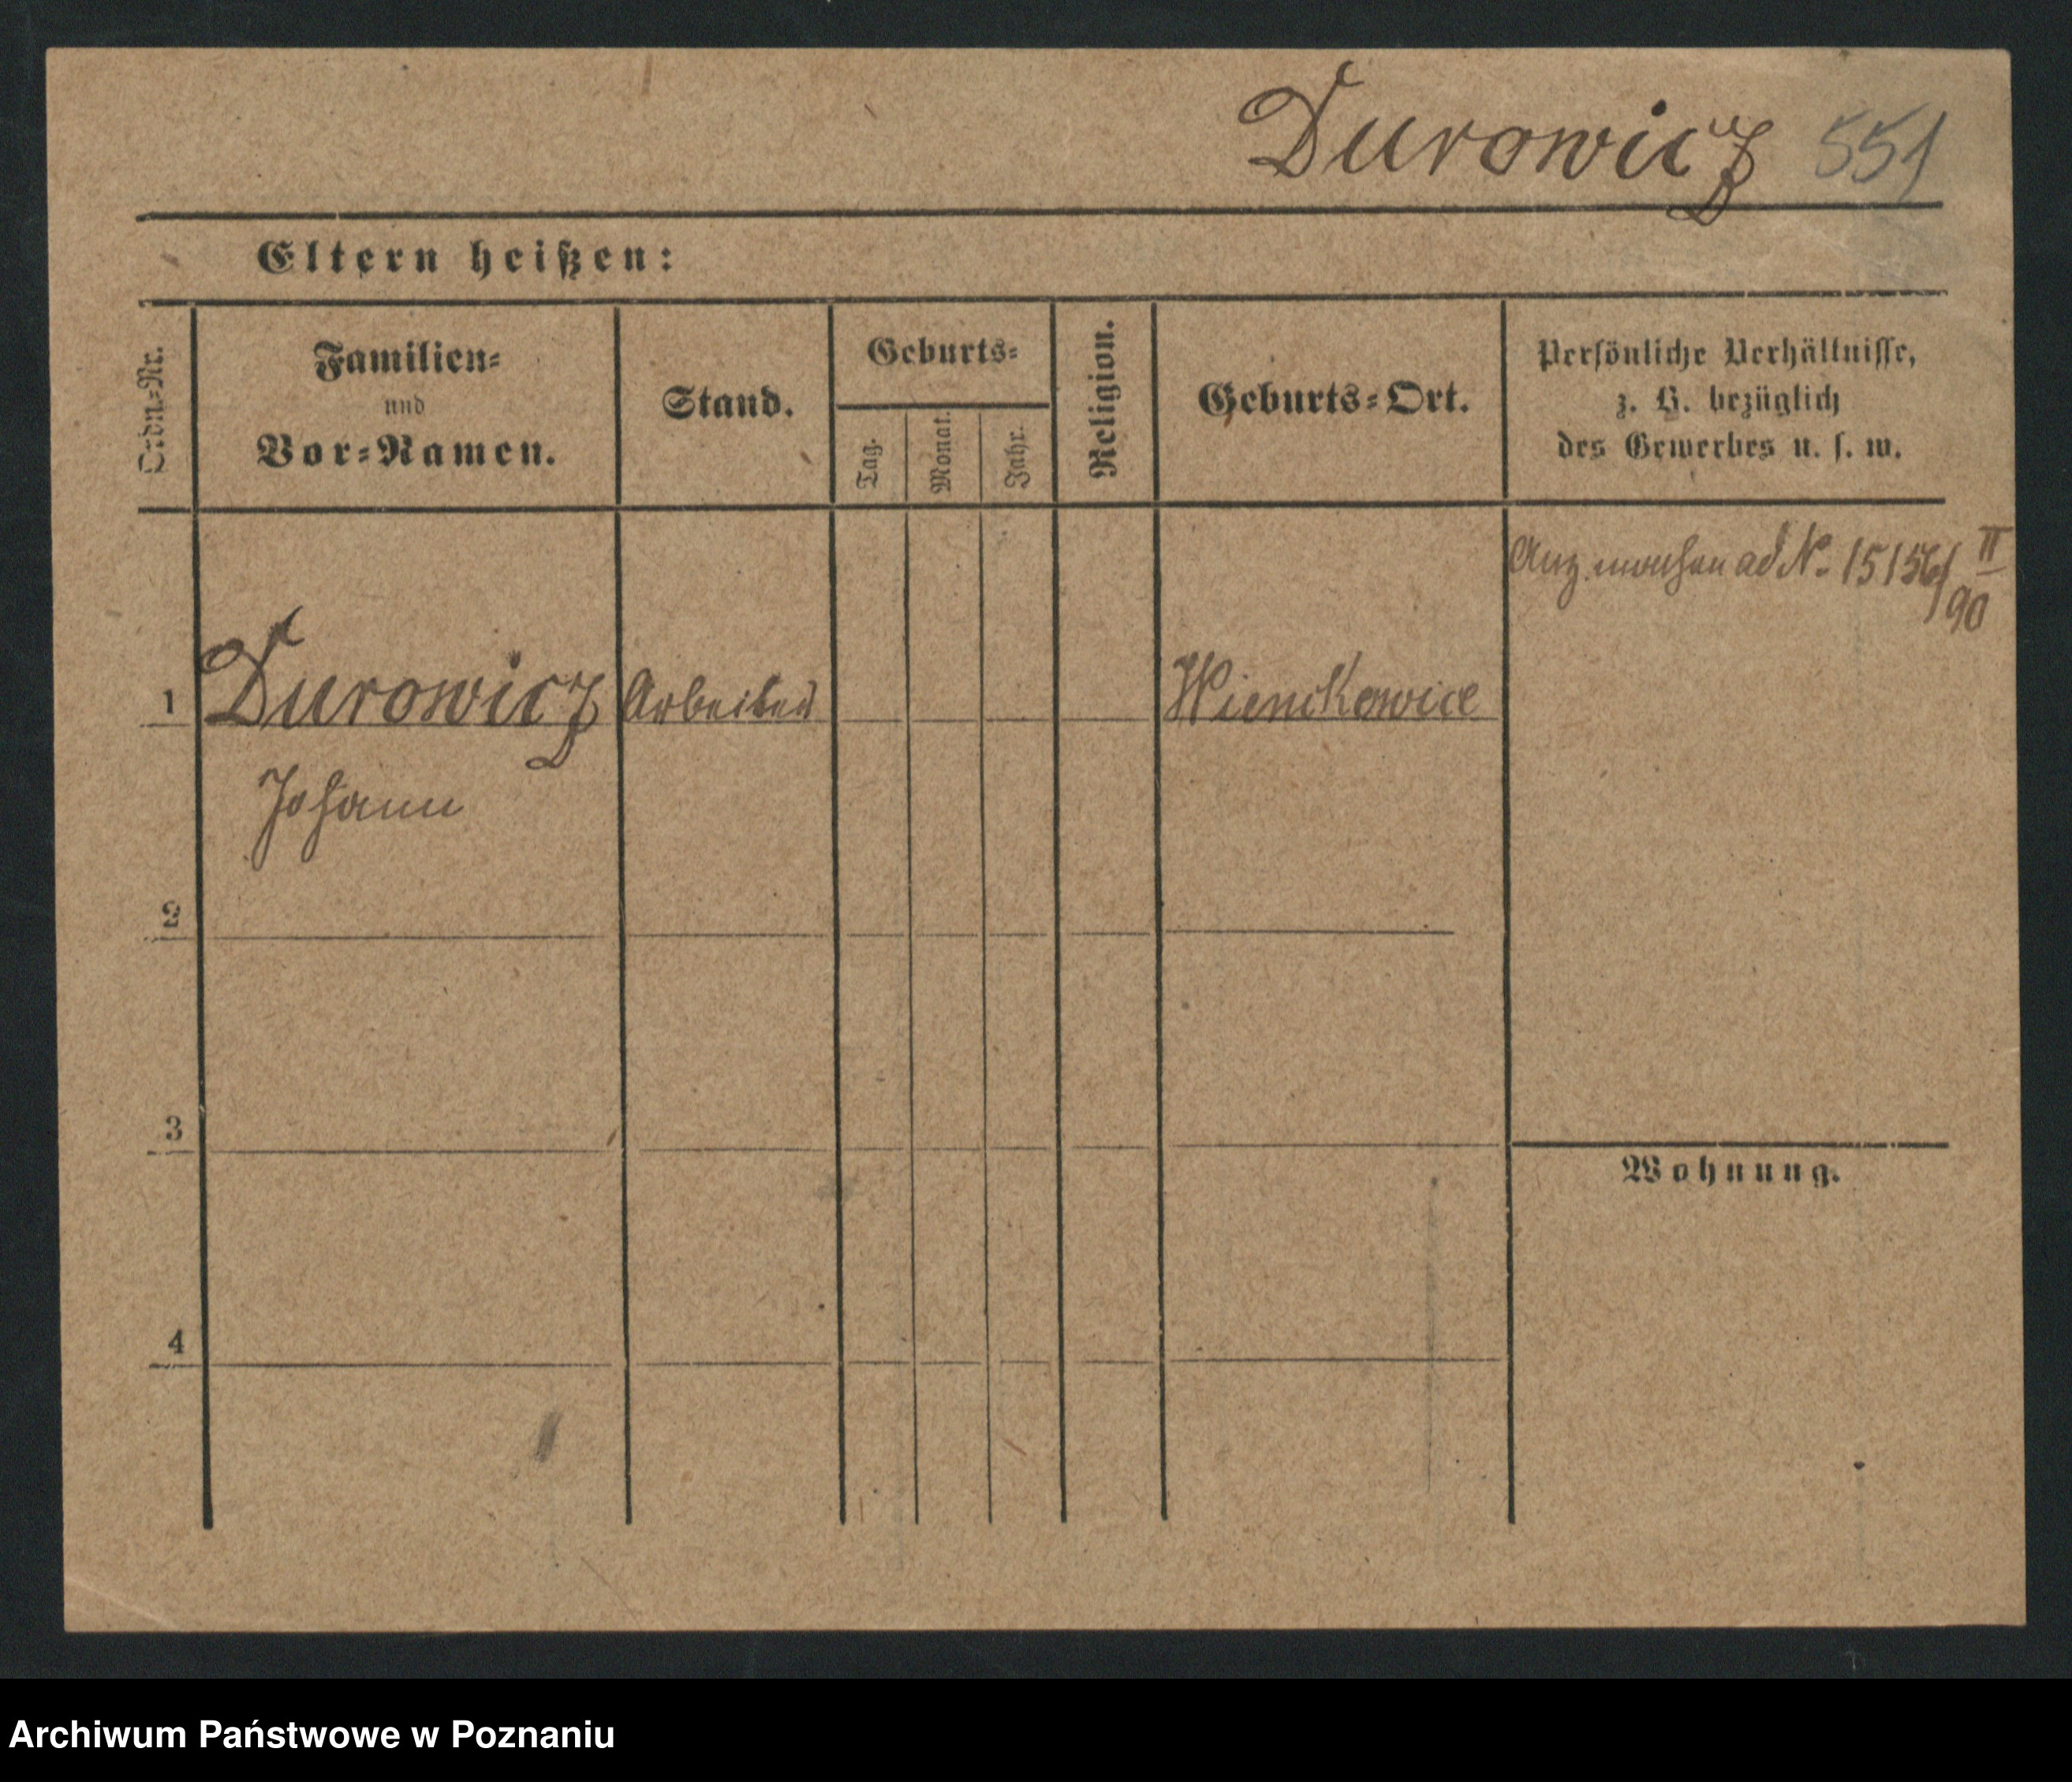 Durowicz 551
Eltern heißen:
Ordn.=Nr.
Familien=
und
Vor=Namen.
Stand.
Geburts=
Tag.
Monat.
Jahr.
Religion.
Geburts=Ort.
Persönliche Verhältnisse,
z. B. bezüglich
des Gewerbes u. s. w.
ad No. 15156/II
90
1 Durowicz Arbeiter
Johann
2
3
Wohnung.
4
Archiwum Państwowe w Poznaniu